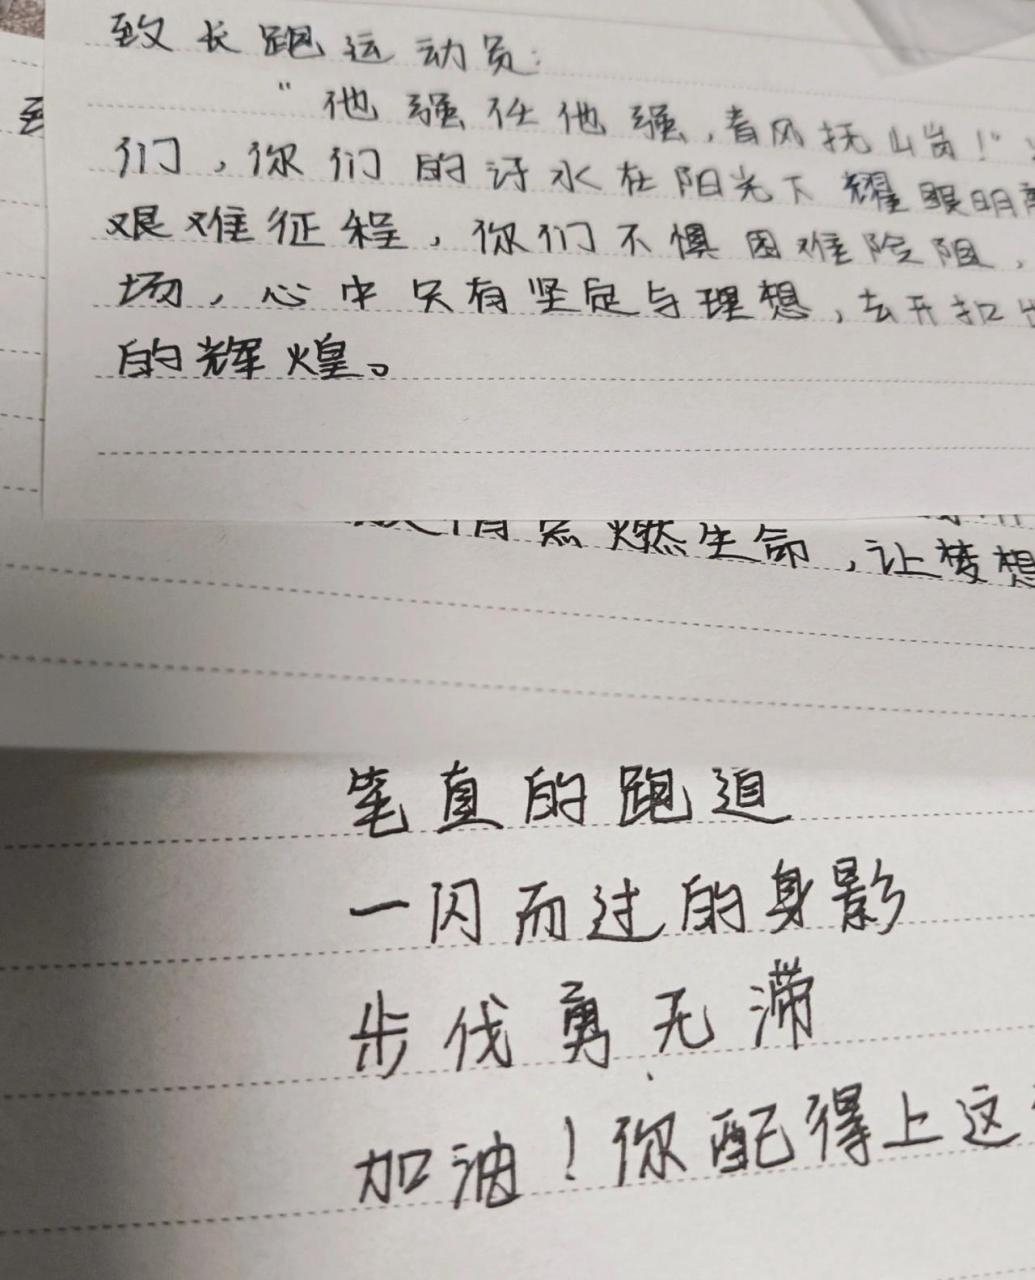 致长跑运动员:
"他强任他强,春风抚山岗!"
们,你们的汗水在阳光下耀眼明
艰难征程,你们不惧困难险阻,
场,心中只有坚定与理想,去开扣
的辉煌。
情点燃生命,让梦想
笔直的跑道
一闪而过的身影
步伐勇无滞
加油!你配得上这